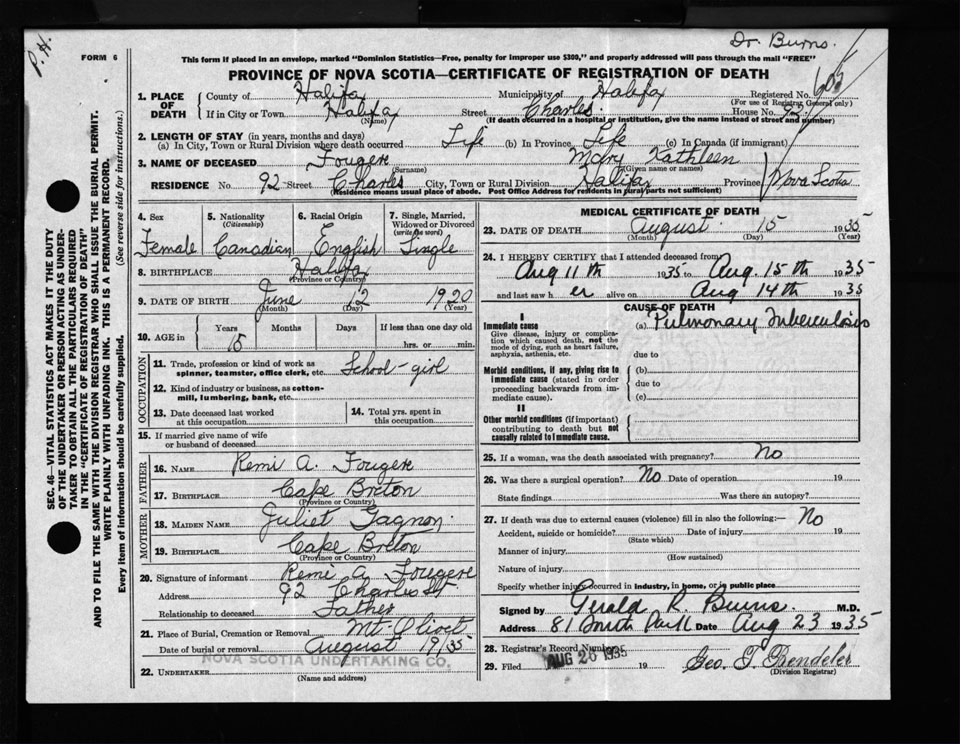 P. H.
Dr. Burns.
FORM 6
This form if placed in an envelope, marked "Dominion Statistics—Free, penalty for improper use $300," and properly addressed will pass through the mail "FREE"
PROVINCE OF NOVA SCOTIA—CERTIFICATE OF REGISTRATION OF DEATH
1. PLACE OF DEATH County of Halifax Municipality of Halifax Registered No.
(For use of Registrar General only)
If in City or Town Halifax Street Charles House No. 92
(Name) (If death occurred in a hospital or institution, give the name instead of street and number)
2. LENGTH OF STAY (in years, months and days)
(a) In City, Town or Rural Division where death occurred Life (b) In Province Life (c) In Canada (if immigrant)
3. NAME OF DECEASED Fougere Mary Kathleen
(Surname) (Given name or names)
RESIDENCE No. 92 Street Charles City, Town or Rural Division Halifax Province Nova Scotia
(Residence means usual place of abode. Post Office Address for residents in rural parts not sufficient)
SEC. 46—VITAL STATISTICS ACT MAKES IT THE DUTY
OF THE UNDERTAKER OR PERSON ACTING AS UNDER-
TAKER TO OBTAIN ALL THE PARTICULARS REQUIRED
IN THE "CERTIFICATE OF REGISTRATION OF DEATH"
AND TO FILE THE SAME WITH THE DIVISION REGISTRAR WHO SHALL ISSUE THE BURIAL PERMIT.
WRITE PLAINLY WITH UNFADING INK. THIS IS A PERMANENT RECORD.
Every item of information should be carefully supplied. (See reverse side for instructions.)
4. Sex 5. Nationality 6. Racial Origin 7. Single, Married,
(Citizenship) Widowed or Divorced
(write the word)
Female Canadian English Single
8. BIRTHPLACE Halifax
(Province or Country)
9. DATE OF BIRTH June 12 1920
(Month) (Day) (Year)
10. AGE in Years Months Days If less than one day old
15 hrs. or min.
OCCUPATION
11. Trade, profession or kind of work as
spinner, teamster, office clerk, etc. School-girl
12. Kind of industry or business, as cotton-
mill, lumbering, bank, etc.
13. Date deceased last worked
at this occupation
14. Total yrs. spent in
this occupation
15. If married give name of wife
or husband of deceased
FATHER
16. NAME Remi A. Fougere
17. BIRTHPLACE Cape Breton
(Province or Country)
MOTHER
18. MAIDEN NAME Juliet Gagnon.
19. BIRTHPLACE Cape Breton
(Province or Country)
20. Signature of informant Remi A. Fougere
Address 92 Charles St.
Relationship to deceased Father
21. Place of Burial, Cremation or Removal Mt. Olivet
Date of burial or removal August 19/35
NOVA SCOTIA UNDERTAKING CO.
22. UNDERTAKER
(Name and address)
MEDICAL CERTIFICATE OF DEATH
23. DATE OF DEATH August 15 1935
(Month) (Day) (Year)
24. I HEREBY CERTIFY that I attended deceased from
Aug 11th 1935 to Aug. 15th 1935
and last saw h er alive on Aug 14th 1935
CAUSE OF DEATH
I
Immediate cause (a) Pulmonary Tuberculosis
Give disease, injury or complica-
tion which caused death, not the
mode of dying, such as heart failure,
asphyxia, asthenia, etc.
due to
Morbid conditions, if any, giving rise to
immediate cause (stated in order
proceeding backwards from im-
mediate cause).
(b)
due to
(c)
II
Other morbid conditions (if important)
contributing to death but not
causally related to immediate cause.
25. If a woman, was the death associated with pregnancy? No
26. Was there a surgical operation? No Date of operation 19
State findings Was there an autopsy?
27. If death was due to external causes (violence) fill in also the following:— No
Accident, suicide or homicide? Date of injury 19
(State which)
Manner of injury
(How sustained)
Nature of injury
Specify whether injury occurred in industry, in home, or in public place
Signed by Gerald R. Burns. M.D.
Address 81 Date Aug 23 1935
28. Registrar's Record Number
29. Filed AUG 26 1935 19
Geo.
(Division Registrar)